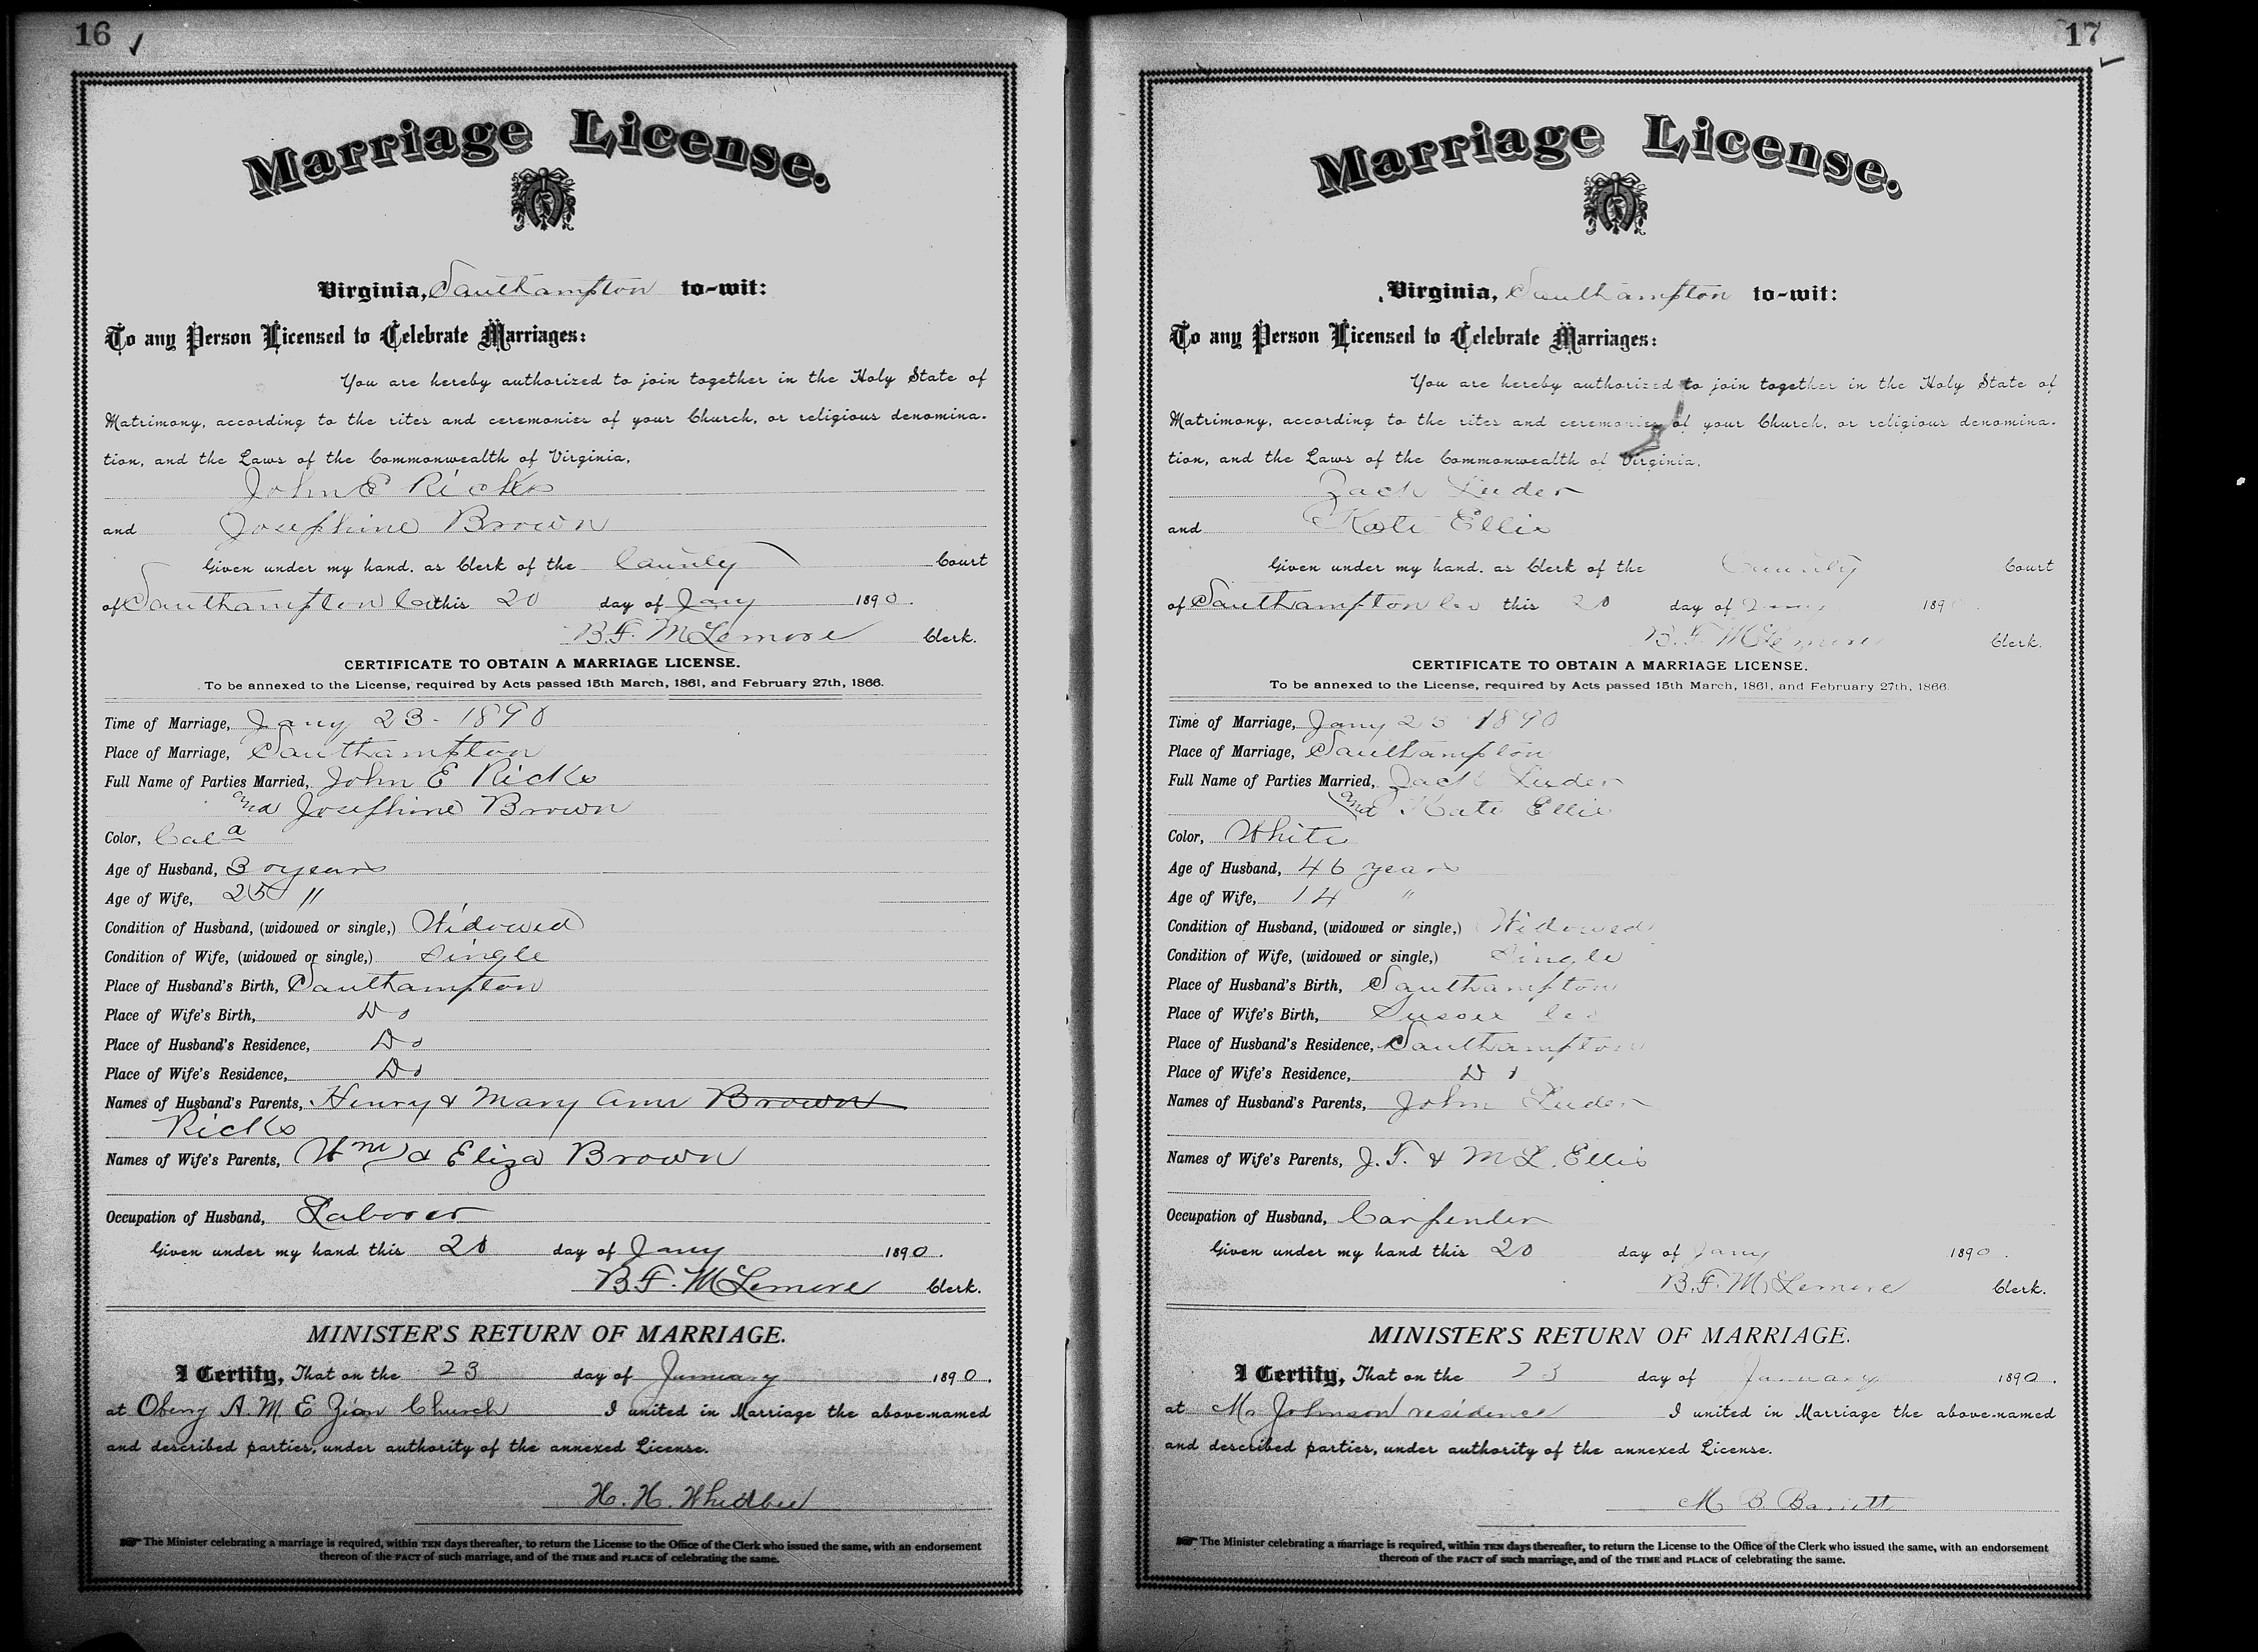 16
Marriage License.
Virginia, Southampton to-wit:
To any Person Licensed to Celebrate Marriages:
You are hereby authorized to join together in the Holy State of
Matrimony, according to the rites and ceremonies of your Church, or religious denomina-
tion, and the Laws of the Commonwealth of Virginia,
John E Ricks
and Josephine Brown
Given under my hand, as Clerk of the County Court
of Southampton Co this 20 day of Jany 1890.
B.F. McLemore Clerk.
CERTIFICATE TO OBTAIN A MARRIAGE LICENSE.
To be annexed to the License, required by Acts passed 15th March, 1861, and February 27th, 1866.
Time of Marriage, Jany 23- 1890
Place of Marriage, Southampton
Full Name of Parties Married, John E Ricks
and Josephine Brown
Color, Cold
Age of Husband, 30 years
Age of Wife, 25 "
Condition of Husband, (widowed or single,) Widowed
Condition of Wife, (widowed or single,) Single
Place of Husband's Birth, Southampton
Place of Wife's Birth, Do
Place of Husband's Residence, Do
Place of Wife's Residence, Do
Names of Husband's Parents, Henry & Mary Ann Brown
Ricks
Names of Wife's Parents, Wm & Eliza Brown
Occupation of Husband, Laborer
Given under my hand this 20 day of Jany 1890.
B.F. McLemore Clerk.
MINISTER'S RETURN OF MARRIAGE.
I Certify, That on the 23 day of January 1890.
at A. M. E Zion Church I united in Marriage the above-named
and described parties, under authority of the annexed License.
H. H. Whidbee
The Minister celebrating a marriage is required, within TEN days thereafter, to return the License to the Office of the Clerk who issued the same, with an endorsement
thereon of the FACT of such marriage, and of the TIME and PLACE of celebrating the same.
17
Marriage License.
Virginia, Southampton to-wit:
To any Person Licensed to Celebrate Marriages:
You are hereby authorized to join together in the Holy State of
Matrimony, according to the rites and ceremonies of your Church, or religious denomina-
tion, and the Laws of the Commonwealth of Virginia,
Zach Luder
and Kate Ellis
Given under my hand, as Clerk of the County Court
of Southampton Co this 20 day of Jany 1890.
B.F. McLemore Clerk.
CERTIFICATE TO OBTAIN A MARRIAGE LICENSE.
To be annexed to the License, required by Acts passed 15th March, 1861, and February 27th, 1866.
Time of Marriage, Jany 23 1890
Place of Marriage, Southampton
Full Name of Parties Married, Zach Luder
and Kate Ellis
Color, White
Age of Husband, 46 years
Age of Wife, 14 "
Condition of Husband, (widowed or single,) Widowed
Condition of Wife, (widowed or single,) Single
Place of Husband's Birth, Southampton
Place of Wife's Birth, Sussex Co
Place of Husband's Residence, Southampton
Place of Wife's Residence, Do
Names of Husband's Parents, John Luder
Names of Wife's Parents, J. T. & M L. Ellis
Occupation of Husband, Carpender
Given under my hand this 20 day of Jany 1890.
B.F. McLemore Clerk.
MINISTER'S RETURN OF MARRIAGE.
I Certify, That on the 23 day of January 1890.
at Mr Johnson residence I united in Marriage the above-named
and described parties, under authority of the annexed License.
M B. Barrett
The Minister celebrating a marriage is required, within TEN days thereafter, to return the License to the Office of the Clerk who issued the same, with an endorsement
thereon of the FACT of such marriage, and of the TIME and PLACE of celebrating the same.